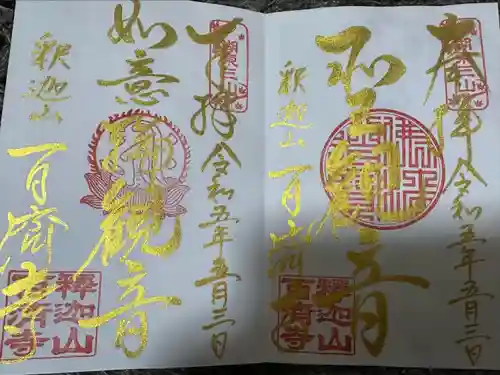 湖東三山
奉拝
令和五年五月三日
観音
釈迦山
百済寺
釋迦山
百済寺
湖東三山
奉拝
令和五年五月三日
如意輪観音
釈迦山
百済寺
釋迦山
百済寺